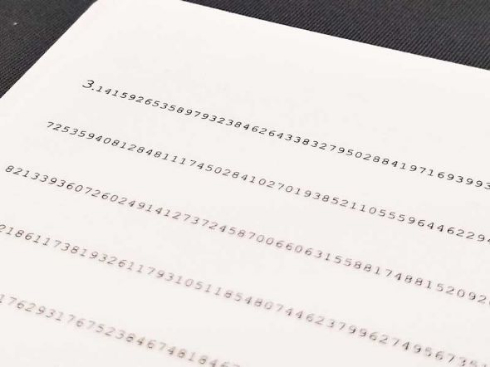 3.14159265358979323846264338327950288419716939993
7253594081284811174502841027019385211055596446229
8213393607260249141273724587006606315588174881152092
2186117381932611793105118548074462379962749567335
1762931767523846748184 6